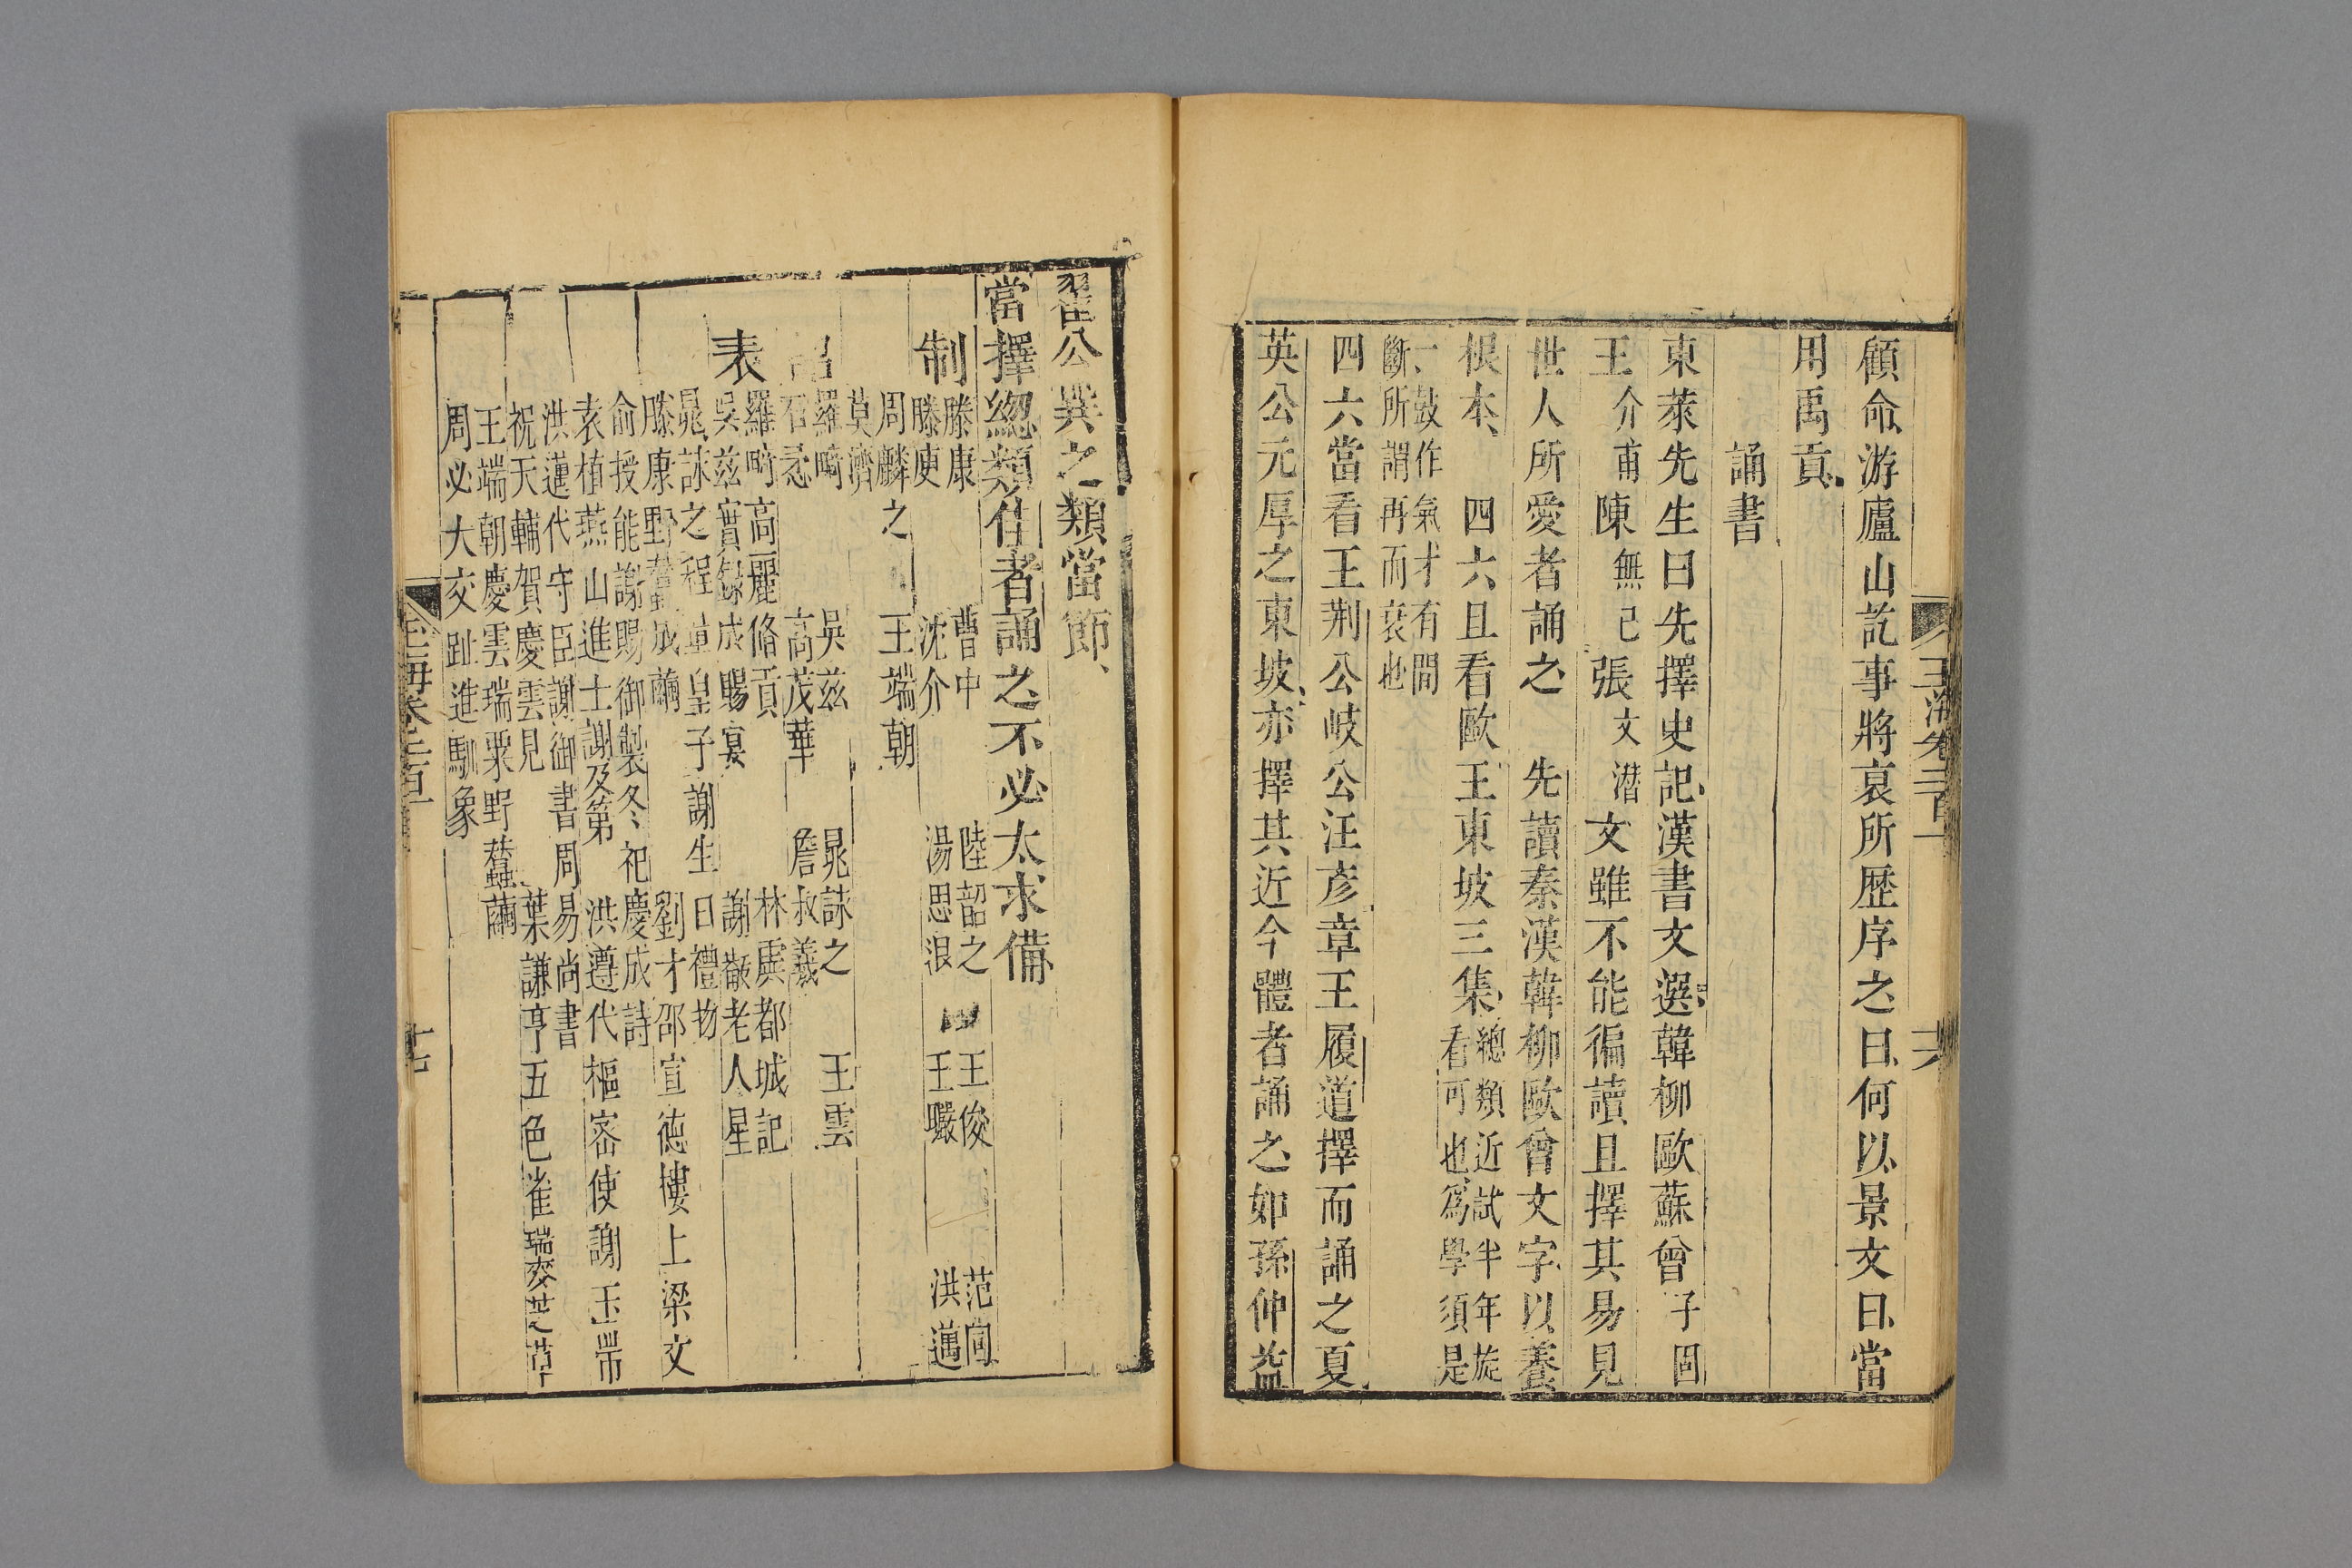 玉海卷二百一
十六
顧命游廬山記事將裒所歷序之曰何以景文曰當
用禹貢
誦書
東萊先生曰先擇史記漢書文選韓柳歐蘇曾子固
王介甫陳無己張文潛文雖不能徧讀且擇其易見
世人所愛者誦之 先讀秦漢韓柳歐曾文字以養
根本 四六且看歐王東坡三集總類近試半年旋
看可也為學須是
一鼓作氣才有間
斷所謂再而衰也
四六當看王荆公岐公汪彥章王履道擇而誦之夏
英公元厚之東坡亦擇其近今體者誦之如孫仲益
翟公巽之類當節
當擇總類佳者誦之不必太求備
制
滕康 曹中 陸韶之 王俊 范同
滕庾 沈介 湯思退 王曮 洪邁
周麟之 王端朝
莫濟
詔
羅畸 吳茲 晁詠之 王雲
石悆 高茂華 詹叔羲
表
羅畸高麗脩貢 林虡都城記
吳茲實錄成賜宴 謝黻老人星
晁詠之程 皇子謝生日禮物
滕康野蠶成繭 劉才邵宣德樓上梁文
俞授能謝賜御製冬祀慶成詩
袁植燕山進士謝及第 洪遵代樞密使謝玉帶
洪邁代守臣謝御書周易尚書
祝天輔賀慶雲見 葉謙亨五色雀瑞麥芝草
王端朝慶雲瑞粟野蠶繭
周必大交趾進馴象
玉海卷二百一
十七